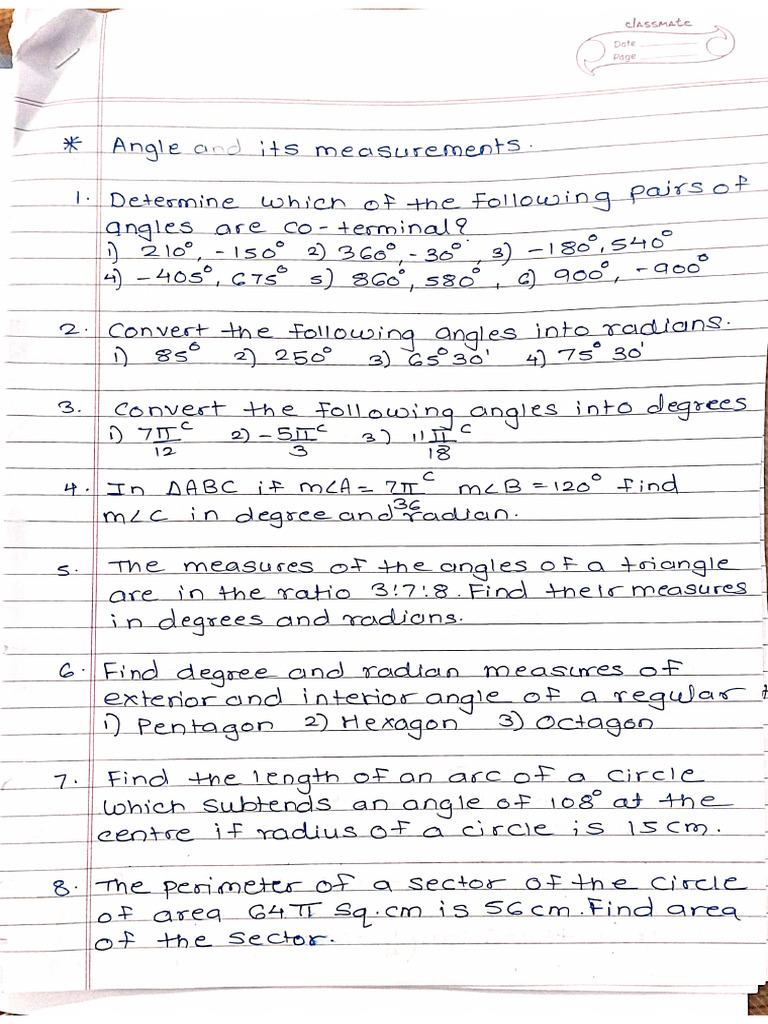 classmate
Date
Page
* Angle and its measurements.
1. Determine which of the following pairs of
angles are co-terminal?
1) 210°, -150° 2) 360°, -30° 3) -180°, 540°
4) -405°, 675° 5) 860°, 580°, 6) 900°, -900°
2. Convert the following angles into radians.
1) 85° 2) 250° 3) 65°30' 4) 75° 30'
3. Convert the following angles into degrees
1) 7π/12 ᶜ 2) -5π/3 ᶜ 3) 11π/18 ᶜ
4. In ΔABC if m∠A = 7π/36 ᶜ m∠B = 120° find
m∠C in degree and radian.
5. The measures of the angles of a triangle
are in the ratio 3:7:8. Find their measures
in degrees and radians.
6. Find degree and radian measures of
exterior and interior angle of a regular
1) Pentagon 2) Hexagon 3) Octagon
7. Find the length of an arc of a circle
which subtends an angle of 108° at the
centre if radius of a circle is 15cm.
8. The perimeter of a sector of the circle
of area 64π sq.cm is 56cm. Find area
of the sector.